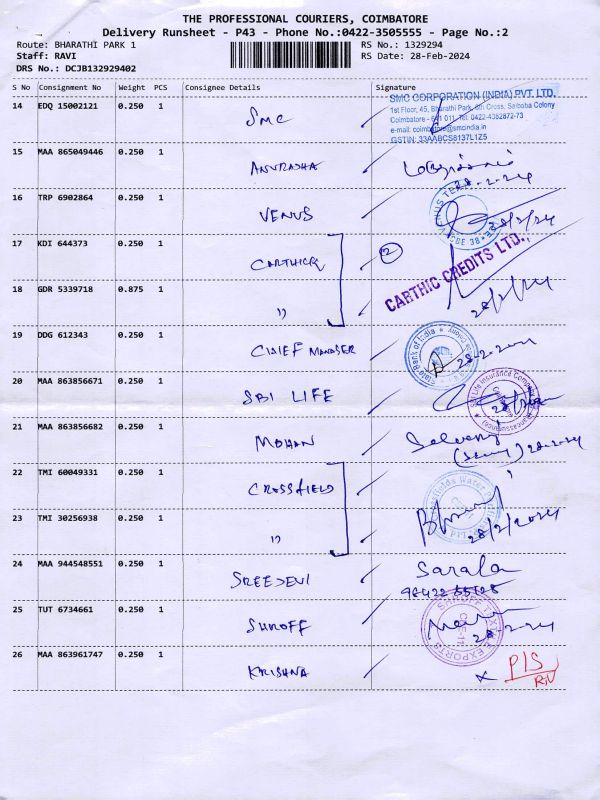 THE PROFESSIONAL COURIERS, COIMBATORE
Delivery Runsheet - P43 - Phone No.:0422-3505555 - Page No.:2
Route: BHARATHI PARK 1 RS No.: 1329294
Staff: RAVI RS Date: 28-Feb-2024
DRS No.: DCJB132929402
S No Consignment No Weight PCS Consignee Details Signature
SMC CORPORATION (INDIA) PVT. LTD.
1st Floor, 45, Bharathi Park, 8th Cross, Saiboba Colony
Coimbatore - 641 011. Tel: 0422-4382872-73
e-mail: coimbatore@smcindia.in
GSTIN: 33AABCS8137L1Z5
14 EDQ 15002121 0.250 1 SMC
15 MAA 865049446 0.250 1 ANURADHA 28-2-24
16 TRP 6902864 0.250 1 VENUS 28/2/24
17 KDI 644373 0.250 1 CARTHICK 12 CARTHIC CREDITS LTD.,
18 GDR 5339718 0.875 1 " 28/2/24
19 DDG 612343 0.250 1 CHIEF MANAGER State Bank of India
20 MAA 863856671 0.250 1 SBI LIFE SBI Life Insurance Company
21 MAA 863856682 0.250 1 MOHAN 28-2-24
22 TMI 60049331 0.250 1 CROSSFIELD
23 TMI 30256938 0.250 1 " 28/2/2024
24 MAA 944548551 0.250 1 SREEDEVI Sarala
25 TUT 6734661 0.250 1 SHROFF 28-2-24
26 MAA 863961747 0.250 1 KRISHNA P/S